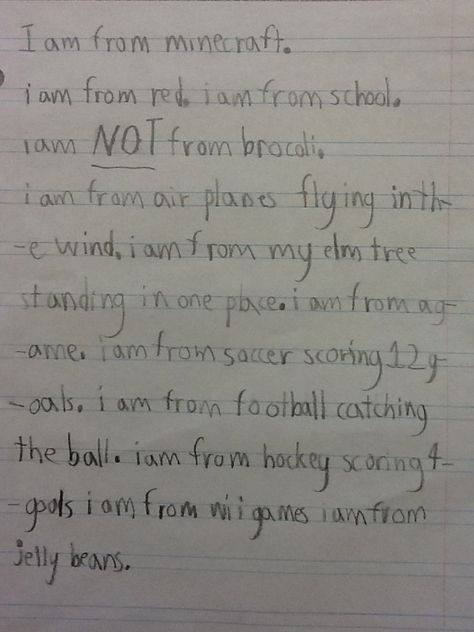 I am from minecraft.
i am from red. i am from school.
i am NOT from brocoli.
i am from air planes flying in th-
-e wind. i am from my elm tree
standing in one place. i am from a g-
-ame. i am from soccer scoring 12 g-
-oals. i am from football catching
the ball. i am from hockey scoring 4-
-goals i am from wii games i am from
jelly beans.